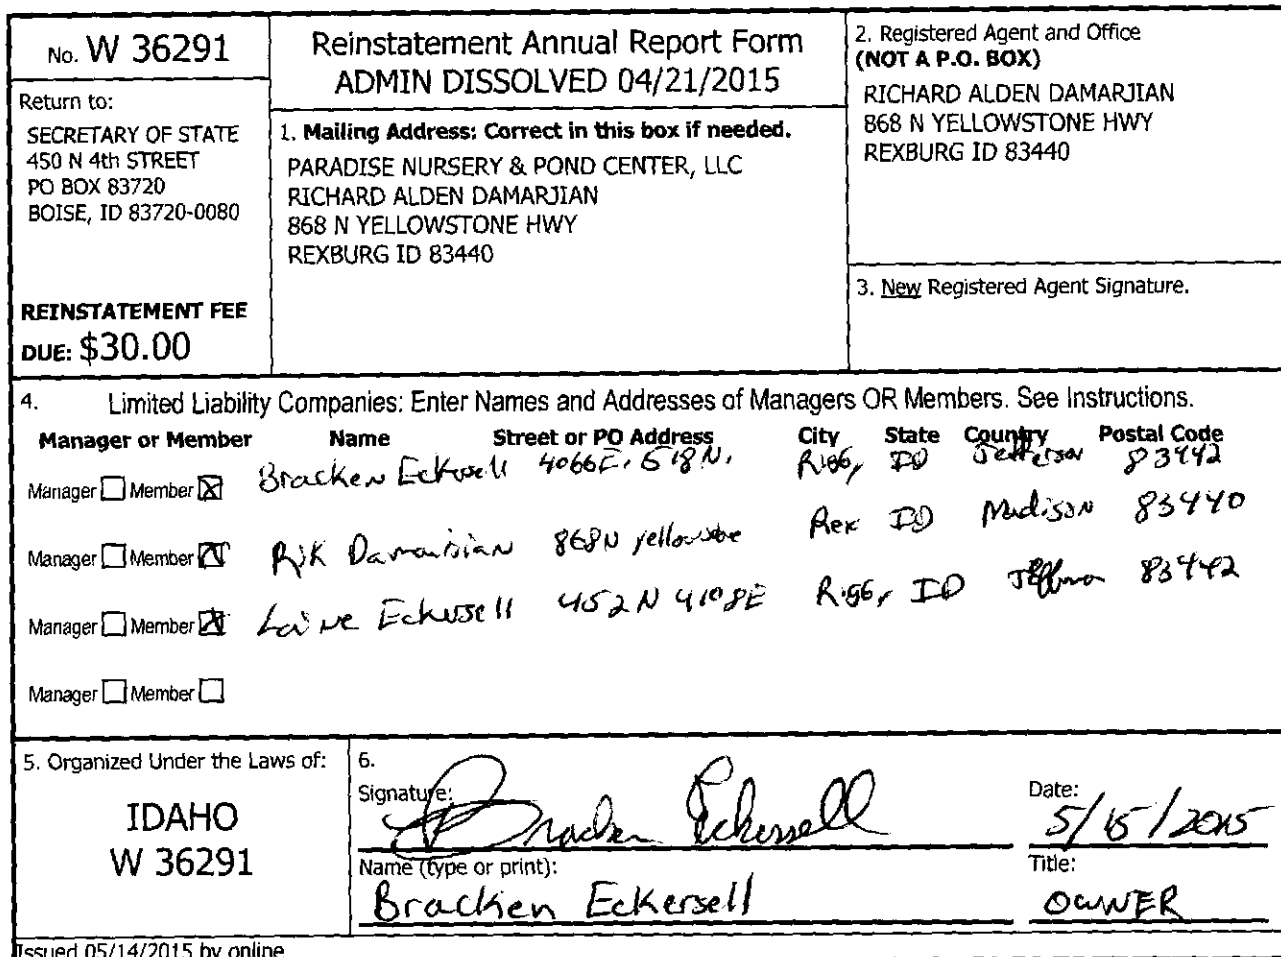 No. W 36291
Return to:
SECRETARY OF STATE
450 N 4th STREET
PO BOX 83720
BOISE, ID 83720-0080
REINSTATEMENT FEE
DUE: $30.00
Reinstatement Annual Report Form
ADMIN DISSOLVED 04/21/2015
1. Mailing Address: Correct in this box if needed.
PARADISE NURSERY & POND CENTER, LLC
RICHARD ALDEN DAMARJIAN
868 N YELLOWSTONE HWY
REXBURG ID 83440
2. Registered Agent and Office
(NOT A P.O. BOX)
RICHARD ALDEN DAMARJIAN
868 N YELLOWSTONE HWY
REXBURG ID 83440
3. New Registered Agent Signature.
4. Limited Liability Companies: Enter Names and Addresses of Managers OR Members. See Instructions.
Manager or Member Name Street or PO Address City State Country Postal Code
Manager Member Bracken Eckersell 4066E. 518N. ID Jefferson 83442
Manager Member Rik 868N yellowstone Rex ID Madison 83440
Manager Member Laine Eckersell 452N 4108E ID Jefferson 83442
Manager Member
5. Organized Under the Laws of:
IDAHO
W 36291
6.
Signature: Bracken Eckersell
Date: 5/15/2015
Name (type or print): Bracken Eckersell
Title: OWNER
Issued 05/14/2015 by online